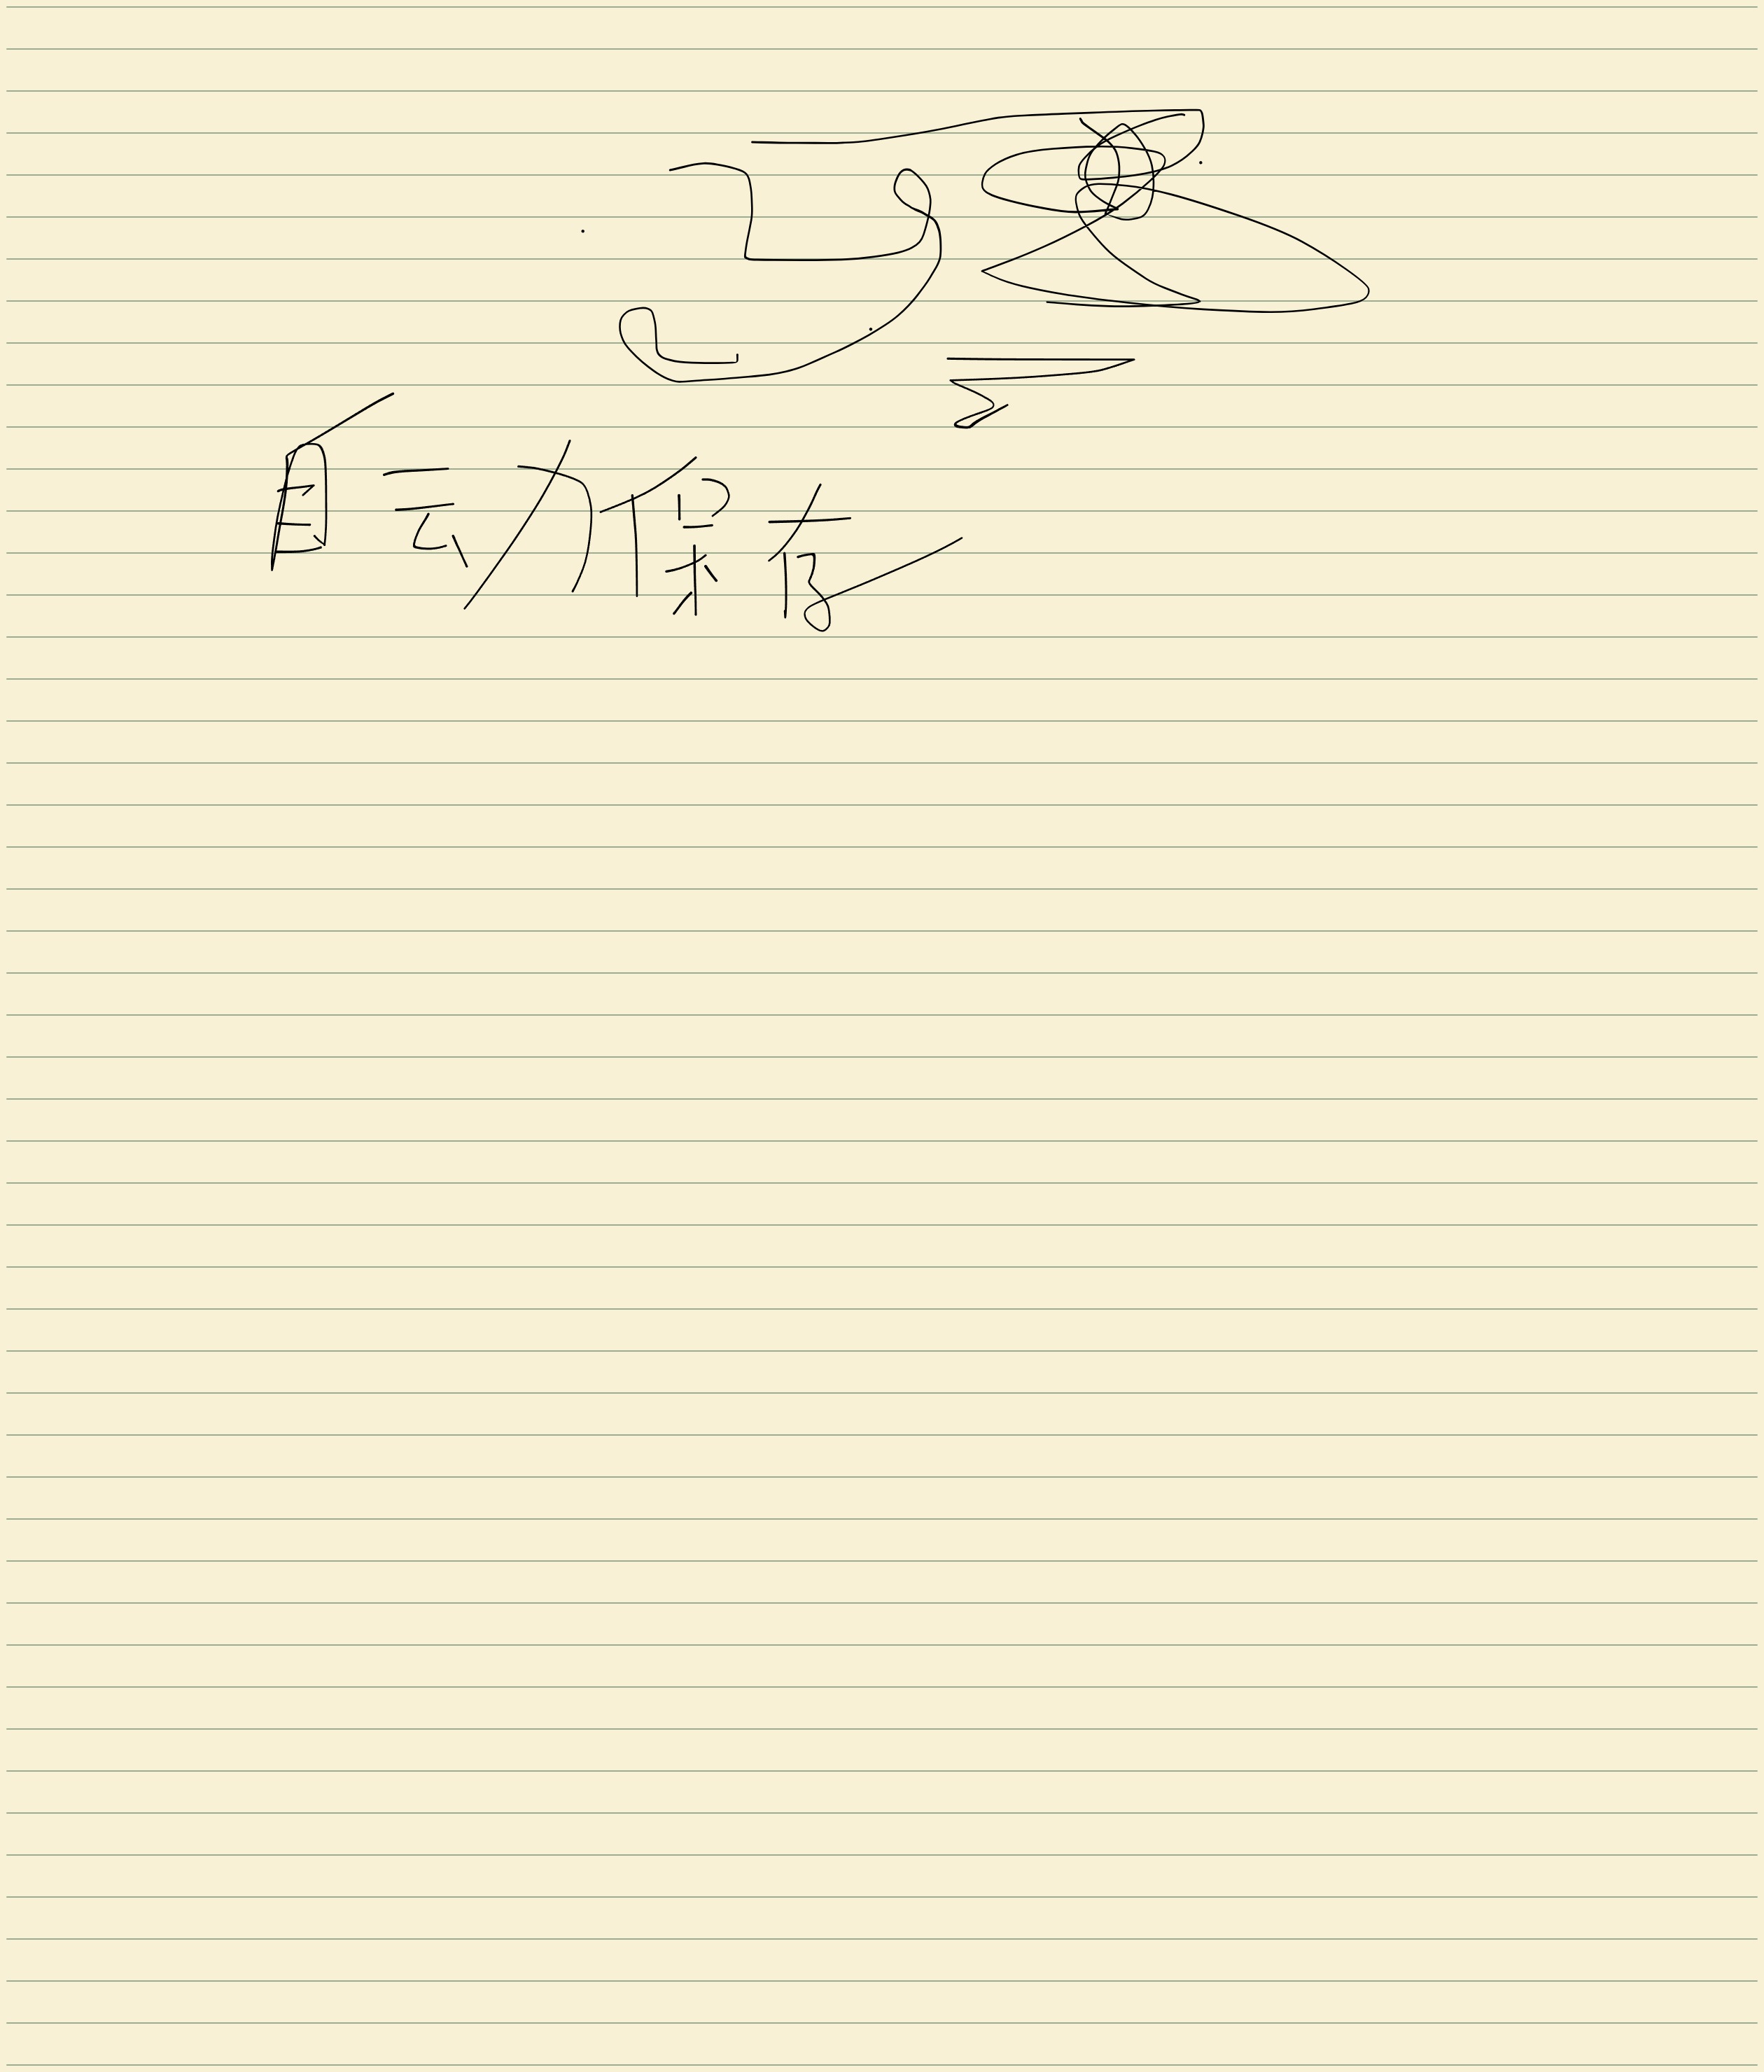 自动保存